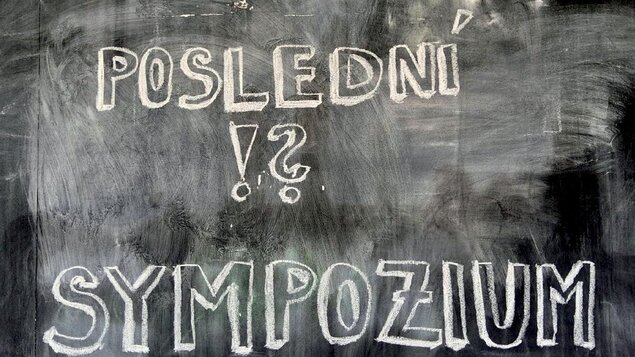 POSLEDNÍ
!?
SYMPOZIUM